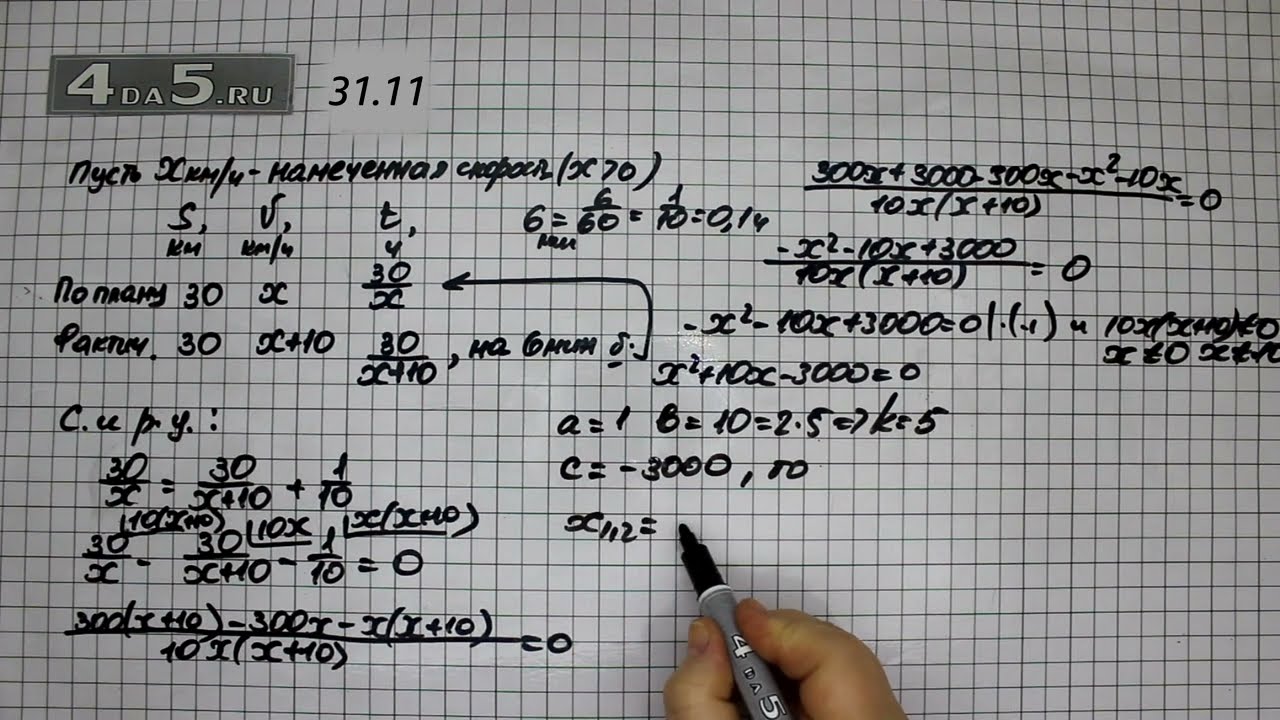 4DA5.RU 31.11
Пусть x км/ч - намеченная скорость (x>0)
S, V, t,
км км/ч ч
По плану 30 x 30/x
Фактич. 30 x+10 30/(x+10), на 6 мин б.
6 мин = 6/60 = 1/10 = 0,1ч
С. и р. у.:
30/x = 30/(x+10) + 1/10
10(x+10) 10x x(x+10)
30/x - 30/(x+10) - 1/10 = 0
(300(x+10) - 300x - x(x+10))/(10x(x+10)) = 0
(300x+3000-300x-x²-10x)/(10x(x+10)) = 0
(-x²-10x+3000)/(10x(x+10)) = 0
-x²-10x+3000=0 |·(-1) и 10x(x+10)≠0
x≠0 x≠-10
x²+10x-3000=0
a=1 b=10=2·5=>k=5
c=-3000, то
x₁,₂=
4DA5